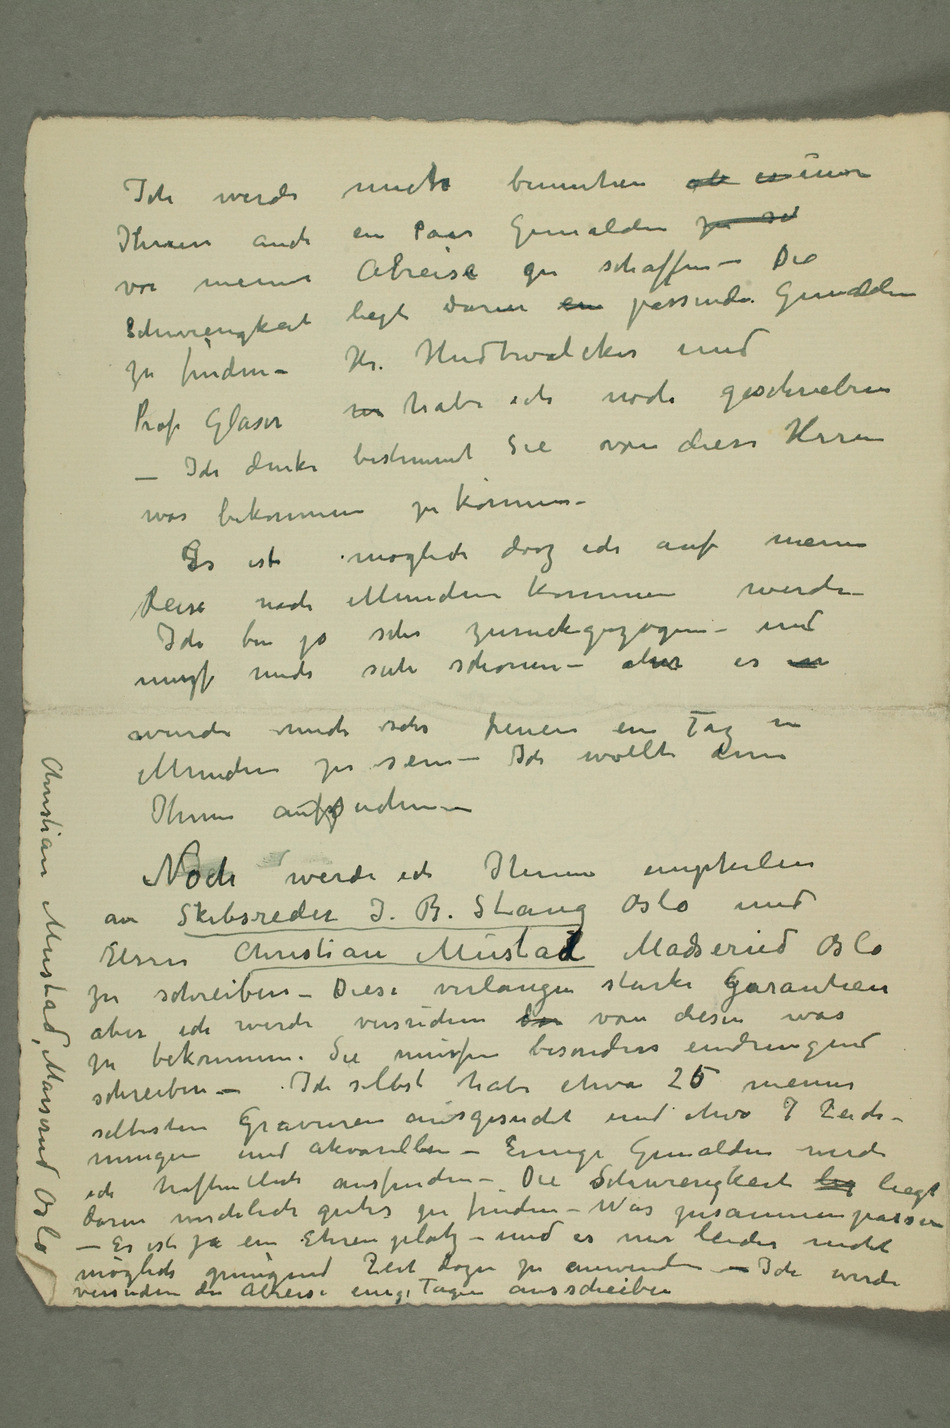 Ich werde mich bemühen ob es immer
Ihnen auch ein Paar Gemälden zu sch
vor meiner Abreise zu schaffen – Die
Schwirigkeit liegt darin ein passende Gemälden
zu finden – Hr. Hudtwalcker und
Prof Glaser habe ich noch geschrieben
– Ich denke bestimmt Sie von diese Herren
was bekommen zu können –
Es ist möglich dasz ich auf meine
Reise nach München kommen werde –
Ich bin ja sehr zurückgezogen – und
musz mich sehr schonen – aber es
wurde mich sehr freuen ein Tag in
München zu sein – Ich wollte dann
Ihnen aufsuchen –
Noch werde ich Ihnen empfehlen
an Skibsreder J. B. Stang Oslo und
Herrn Christian Mustad Madserud Oslo
zu schreiben – Diese verlangen starke Garantien
aber ich werde versuchen von diesen was
zu bekommen. Sie müssen besonders eindringend
schreiben – Ich selbst habe etwa 25 meiner
seltesten Gravuren ausgesucht und etwa 7 Zeich-
nungen und Akvarellen – Einige Gemälden werde
ich hoffentlich ausfinden – Die Schwirigkeit lieg liegt
darin wirchlich gutes zu finden – Was zusammen passen
– Es ist ja ein Ehrenplatz – und es mir leider nicht
möglich genügend Zeit dazu zu anwenden – Ich werde
versuchen die Abreise einige Tagen ausschieben
Christian Mustad, Masserud Oslo